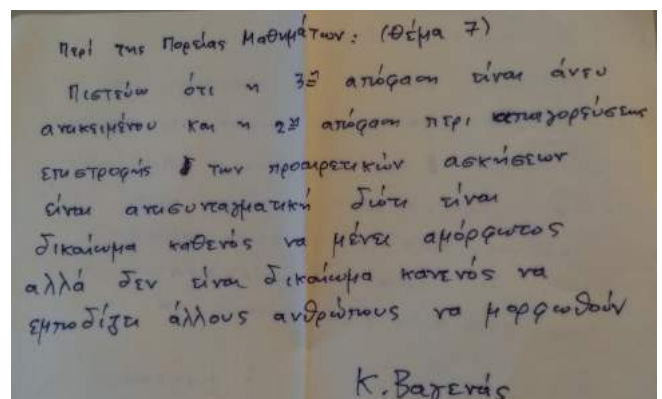 Περί της Πορείας Μαθημάτων: (Θέμα 7)
Πιστεύω ότι η 3η απόφαση είναι άνευ
αντικειμένου και η 2η απόφαση περί απαγορεύσεως
επιστροφής των προαιρετικών ασκήσεων
είναι αντισυνταγματική διότι είναι
δικαίωμα καθενός να μένει αμόρφωτος
αλλά δεν είναι δικαίωμα κανενός να
εμποδίζει άλλους ανθρώπους να μορφωθούν
Κ. Βαγενάς